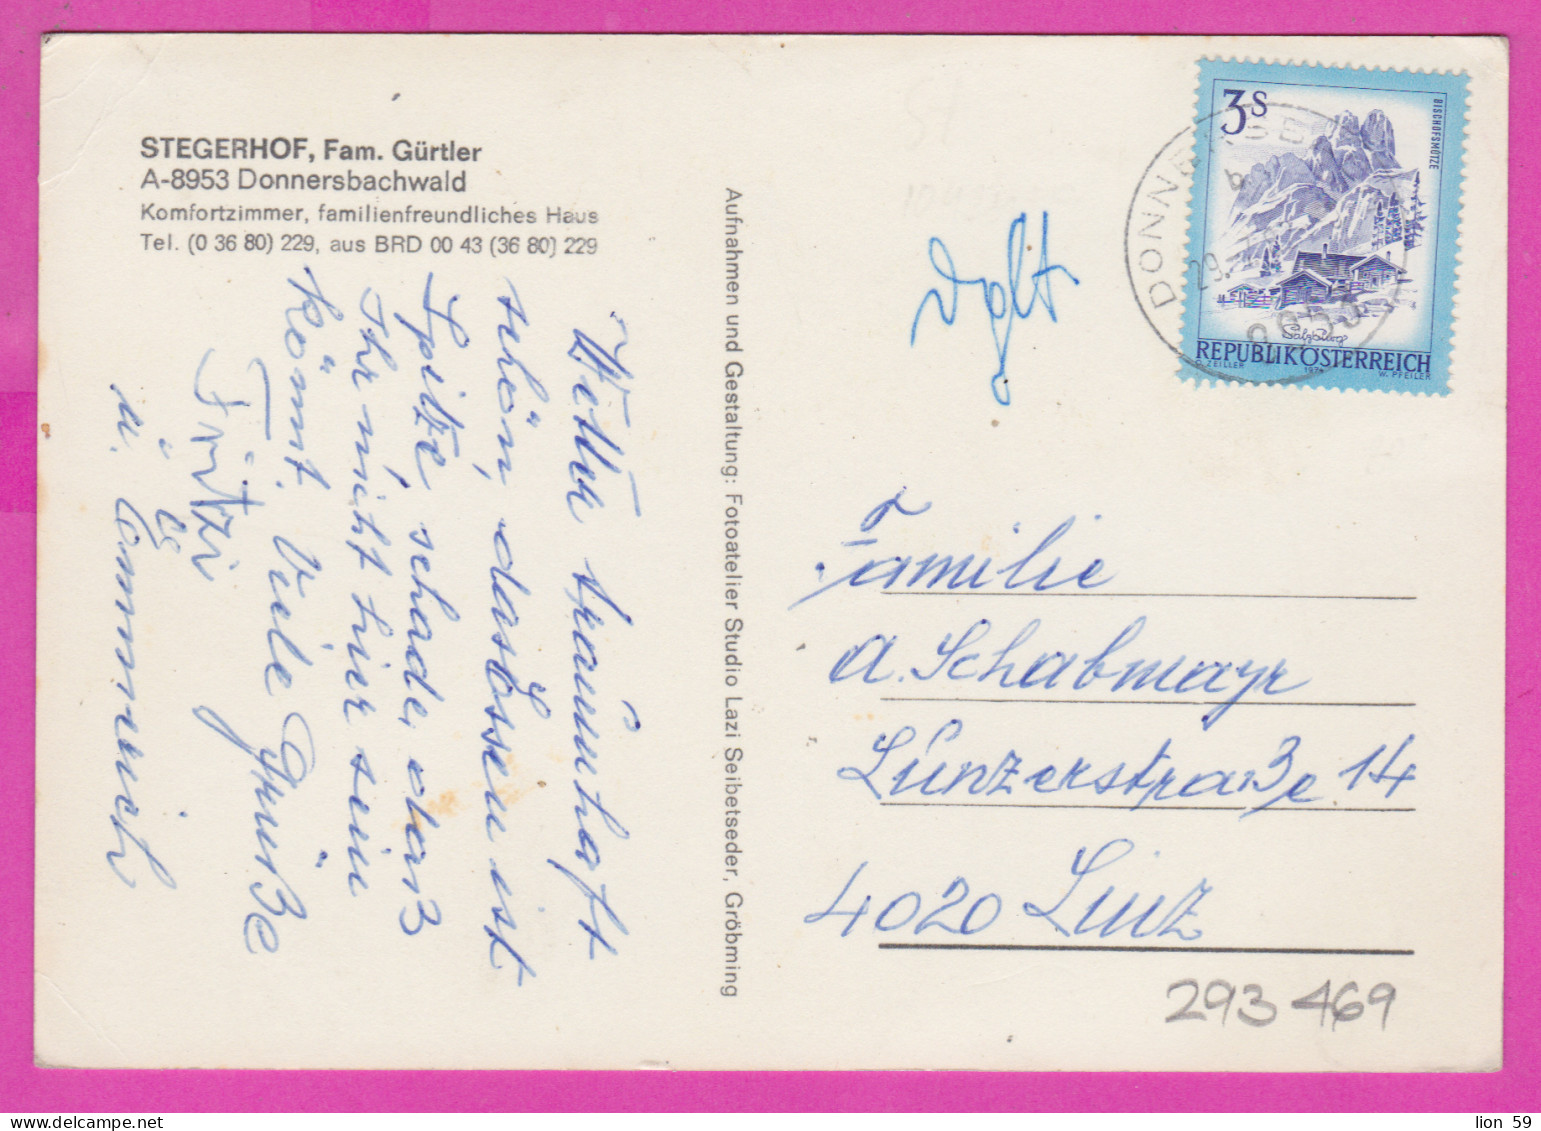 STEGERHOF, Fam. Gürtler
A-8953 Donnersbachwald
Komfortzimmer, familienfreundliches Haus
Tel. (0 36 80) 229, aus BRD 00 43 (36 80) 229
Wetter traumhaft
schön, das Essen ist
Spitze schade, daß
Ihr nicht hier sein
könnt. Viele Grüße
Fritzi
u.
Aufnahmen und Gestaltung: Fotoatelier Studio Lazi Seibetseder, Gröbming
3S
BISCHOFSMÜTZE
Salzburg
REPUBLIK ÖSTERREICH
O. ZEILLER 1974 W. PFEILER
DONNERSB
b
29.
8953
Familie
A. Schabmayr
Lunzerstraße 14
4020 Linz
293 469
lion 59